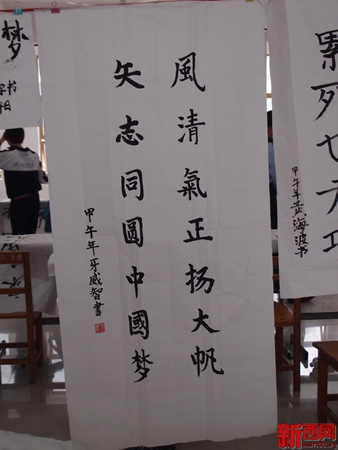 甲午年黄海波书
風清氣正扬大帆
矢志同圓中國梦
甲午年牙威智書
梦
新西网